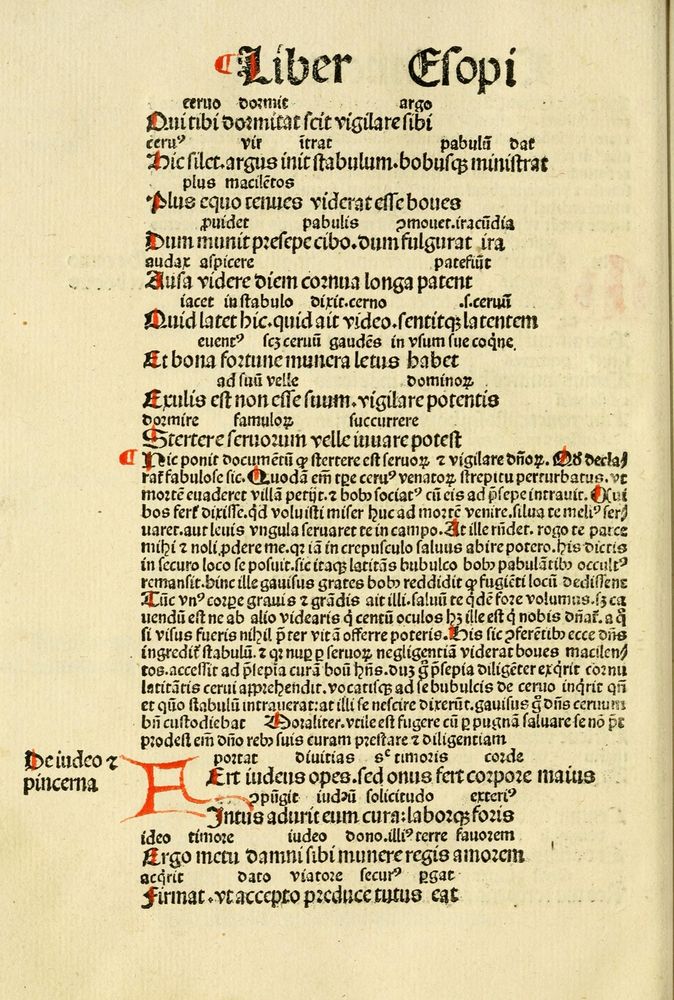 ¶Liber Esopi
ceruo dormit argo
Qui tibi dormitat scit vigilare sibi
ceruꝰ vir ītrat pabulū dat
Hic silet.argus init stabulum.bobusqꝫ ministrat
plus macilētos
Plus equo tenues viderat esse boues
ꝓuidet pabulis ꝯmouet.iracūdia
Dum munit presepe cibo.dum fulgurat ira
audax aspicere patefiūt
Ausa videre diem cornua longa patent
iacet in stabulo dixit.cerno .s.ceruū
Quid latet hic.quid ait video.sentitqꝫ latentem
euentꝰ scꝫ ceruū gaudēs in vsum sue coqne.
Et bona fortune munera letus habet
ad suū velle dominoꝝ
Exulis est non esse suum.vigilare potentis
dormire famuloꝝ succurrere
Stertere seruorum velle iuuare potest
¶ Hic ponit documētū ꝙ stertere est seruoꝝ ⁊ vigilare dn̄oꝝ. Qd̓ decla/
rat fabulose sic. Quodā em̄ tꝑe ceruꝰ venatoꝝ strepitu perturbatus. vt
mortē euaderet villā petijt. ⁊ bobꝰ sociatꝰ cū eis ad p̄sepe intrauit. Cui
bos fert̉ dixisse. qd̓ voluisti miser huc ad mortē venire. silua te meliꝰ ser/
uaret. aut leuis vngula seruaret te in campo. At ille rn̄det. rogo te parce
mihi ⁊ noli ꝓdere me. qꝛ iā in crepusculo saluus abire potero. his dictis
in securo loco se posuit. sic itaqꝫ latitās bubulco bobꝰ pabulātibꝰ occultꝰ
remansit. hinc ille gauisus grates bobꝰ reddidit ꝙ fugiēti locū dedissent
Tūc vnꝰ corꝑe grauis ⁊ grādis ait illi. saluū te qd̓ē fore volumus. sꝫ ca
uendū est ne ab alio videaris q̇ centū oculos hꝫ ille est q̇ nobis dn̄at̉. a q̇
si visus fueris nihil p̄ter vitā offerre poteris. His sic ꝯferētibꝰ ecce dn̄s
ingredit̉ stabulū. ⁊ qꝛ nuꝑ ꝑ seruoꝝ negligentiā viderat boues macilen/
tos. accessit ad p̄sepia curā boū hn̄s. dūqꝫ ꝙ p̄sepia diligēter exq̇rit cornu
latitātis cerui apprehendit. vocatisqꝫ ad se bubulcis de ceruo inq̇rit qn̄
et quō stabulū intrauerat: at illi se nescire dixerūt. gauisus gͦ dn̄s ceruum
bn̄ custodiebat Moraliter. vtile est fugere cū ꝑ pugnā saluare se nō pōt
prodest em̄ dn̄o rebꝰ suis curam prestare ⁊ diligentiam
De iudeo ⁊
pincerna
portat diuitias sꝫ timoris corde
FErt iudeus opes.sed onus fert corpore maius
ꝯpūgit iudeū solicitudo exteriꝰ
Intus adurit eum cura:laborqꝫ foris
ideo timore iudeo dono.illiꝰ terre fauorem
Ergo metu damni sibi munere regis amorem
acq̇rit dato viatore securꝰ ꝑgat
Firmat.vt accepto preduce tutus eat